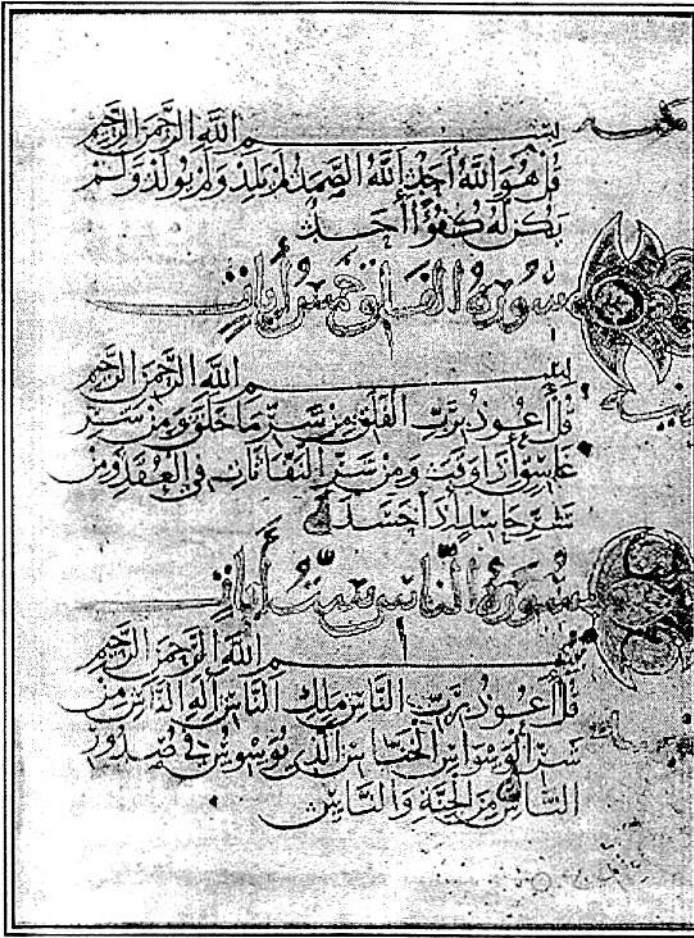 بِسْمِ اللَّهِ الرَّحْمَنِ الرَّحِيمِ
قُلْ هُوَ اللَّهُ أَحَدٌ اللَّهُ الصَّمَدُ لَمْ يَلِدْ وَلَمْ يُولَدْ وَلَمْ
يَكُنْ لَهُ كُفُوًا أَحَدٌ
سُورَةُ الفَلَقِ خَمْسُ أَيَاتٍ
بِسْمِ اللَّهِ الرَّحْمَنِ الرَّحِيمِ
قُلْ أَعُوذُ بِرَبِّ الْفَلَقِ مِنْ شَرِّ مَا خَلَقَ وَمِنْ شَرِّ
غَاسِقٍ إِذَا وَقَبَ وَمِنْ شَرِّ النَّفَّاثَاتِ فِي الْعُقَدِ وَمِنْ
شَرِّ حَاسِدٍ إِذَا حَسَدَ
سُورَةُ النَّاسِ سِتُّ أَيَاتٍ
بِسْمِ اللَّهِ الرَّحْمَنِ الرَّحِيمِ
قُلْ أَعُوذُ بِرَبِّ النَّاسِ مَلِكِ النَّاسِ إِلَهِ النَّاسِ مِنْ
شَرِّ الْوَسْوَاسِ الْخَنَّاسِ الَّذِي يُوَسْوِسُ فِي صُدُورِ
النَّاسِ مِنَ الْجِنَّةِ وَالنَّاسِ